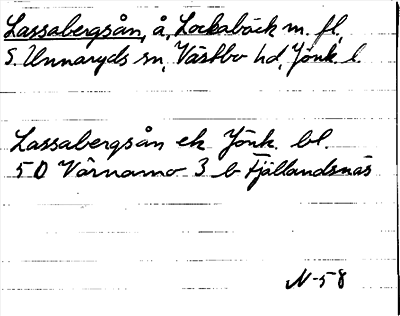 Lassabergsån, å, Lockabäck m. fl.
S. Unnaryds sn, Västbo hd, Jönk. l.
Lassabergsån ek Jönk. bl.
5 D Värnamo 3 b Fjällandsnäs
N-58